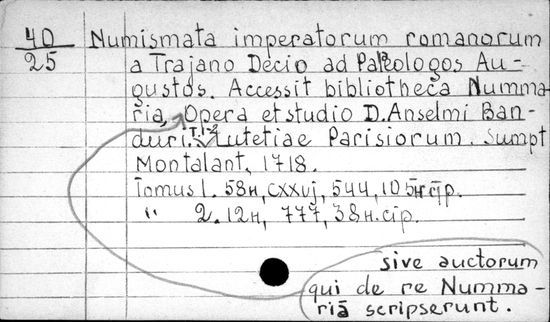 40
25
Numismata imperatorum romanorum
a Trajano Decio ad Paleologos Au-
gustos. Accessit bibliotheca Numma-
ria, Opera et studio D. Anselmi Ban-
duri. T. 1-2 Lutetiae Parisiorum. Sumpt
Montalant, 1718.
Tomus 1. 58н, cxxvj, 544,
" 2. 12н, 777, 38н.стр.
sive auctorum
qui de re Numma-
riā scripserunt.